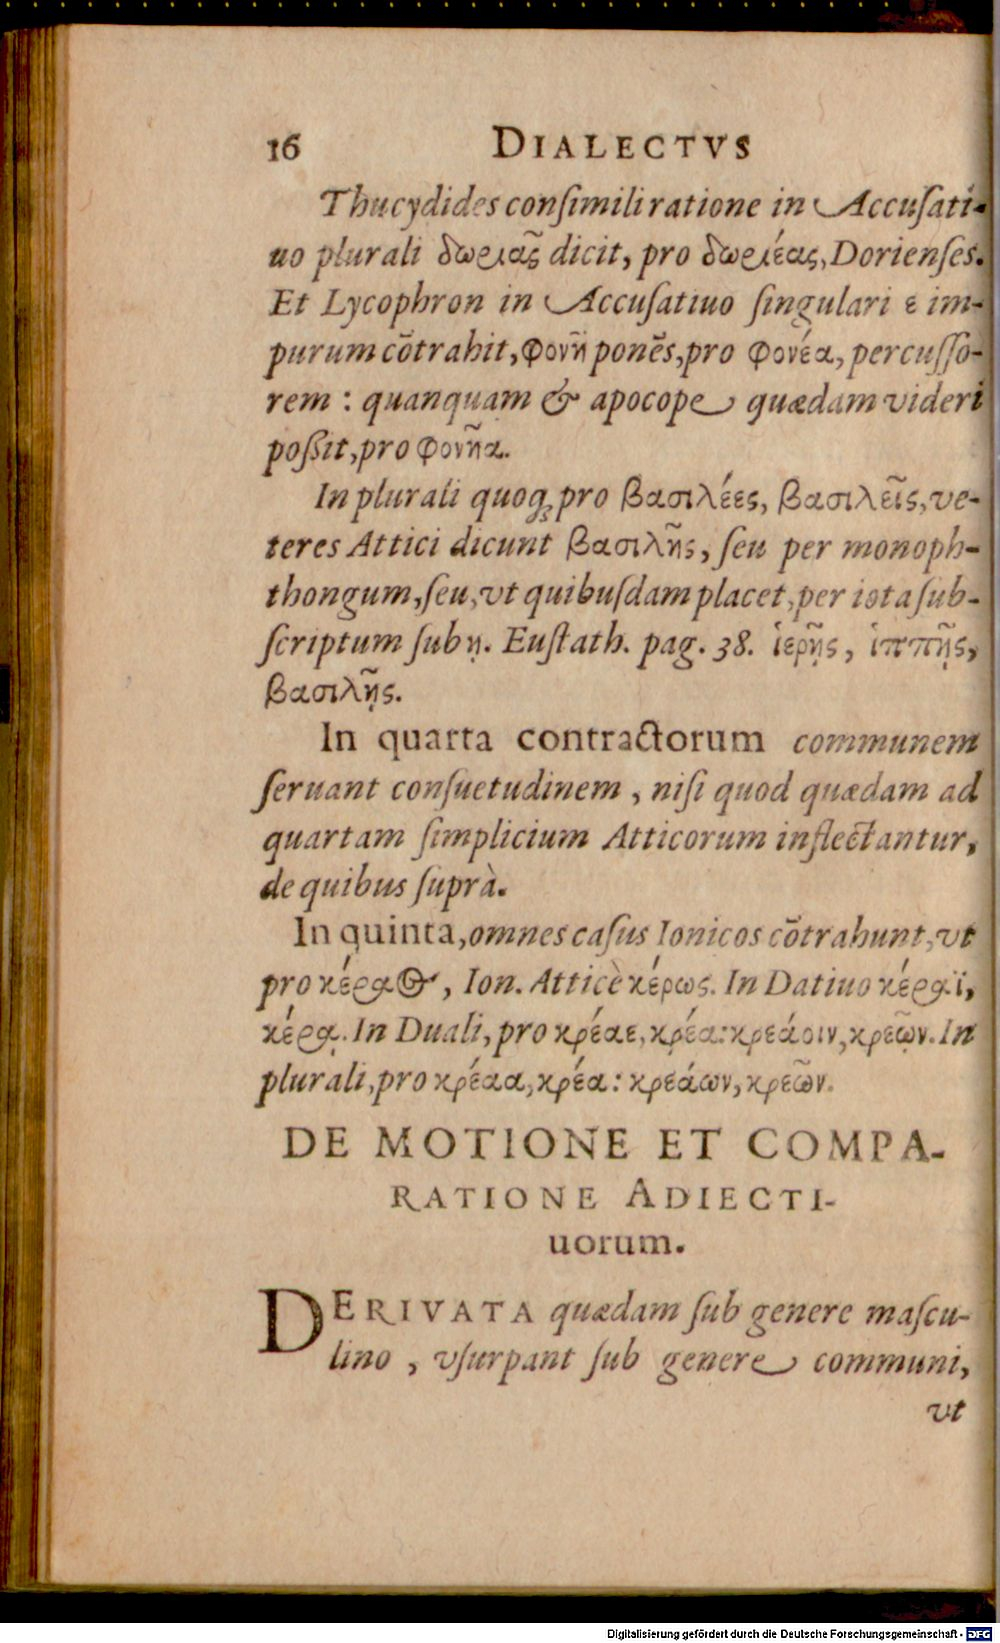 16 DIALECTVS
Thucydides conſimili ratione in Accuſati-
uo plurali δωριᾶς dicit, pro δωριέας, Dorienſes.
Et Lycophron in Accuſatiuo ſingulari ε im-
purum cōtrahit, φονῆ ponēs, pro φονέα, percuſſo-
rem : quanquam & apocope quædam videri
poßit, pro φονῆα.
In plurali quoqꝫ pro βασιλέες, βασιλεῖς, ve-
teres Attici dicunt βασιλῆς, ſeu per monoph-
thongum, ſeu, vt quibuſdam placet, per iota ſub-
ſcriptum ſub ῃ. Euſtath. pag. 38. ἱερῇς, ἱππῇς,
βασιλῇς.
In quarta contractorum communem
ſeruant conſuetudinem, niſi quod quædam ad
quartam ſimplicium Atticorum inflectantur,
de quibus ſuprà.
In quinta, omnes caſus Ionicos cōtrahunt, vt
pro κέραος, Ion. Atticè κέρως. In Datiuo κέραϊ,
κέρᾳ. In Duali, pro κρέαε, κρέα: κρεάοιν, κρεῷν. In
plurali, pro κρέαα, κρέα: κρεάων, κρεῶν.
DE MOTIONE ET COMPA-
RATIONE ADIECTI-
uorum.
DERIVATA quædam ſub genere maſcu-
lino, vſurpant ſub genere communi,
vt
Digitalisierung gefördert durch die Deutsche Forschungsgemeinschaft - DFG